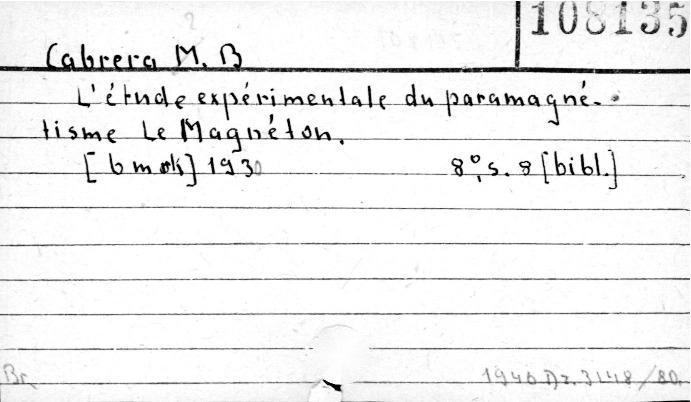 108135
Cabrera M. B
L'étude expérimentale du paramagné-
tisme Le Magnéton.
[b m] 1930 8°, s. 8 [bibl.]
Br. 1946 Dz. 3148/80.